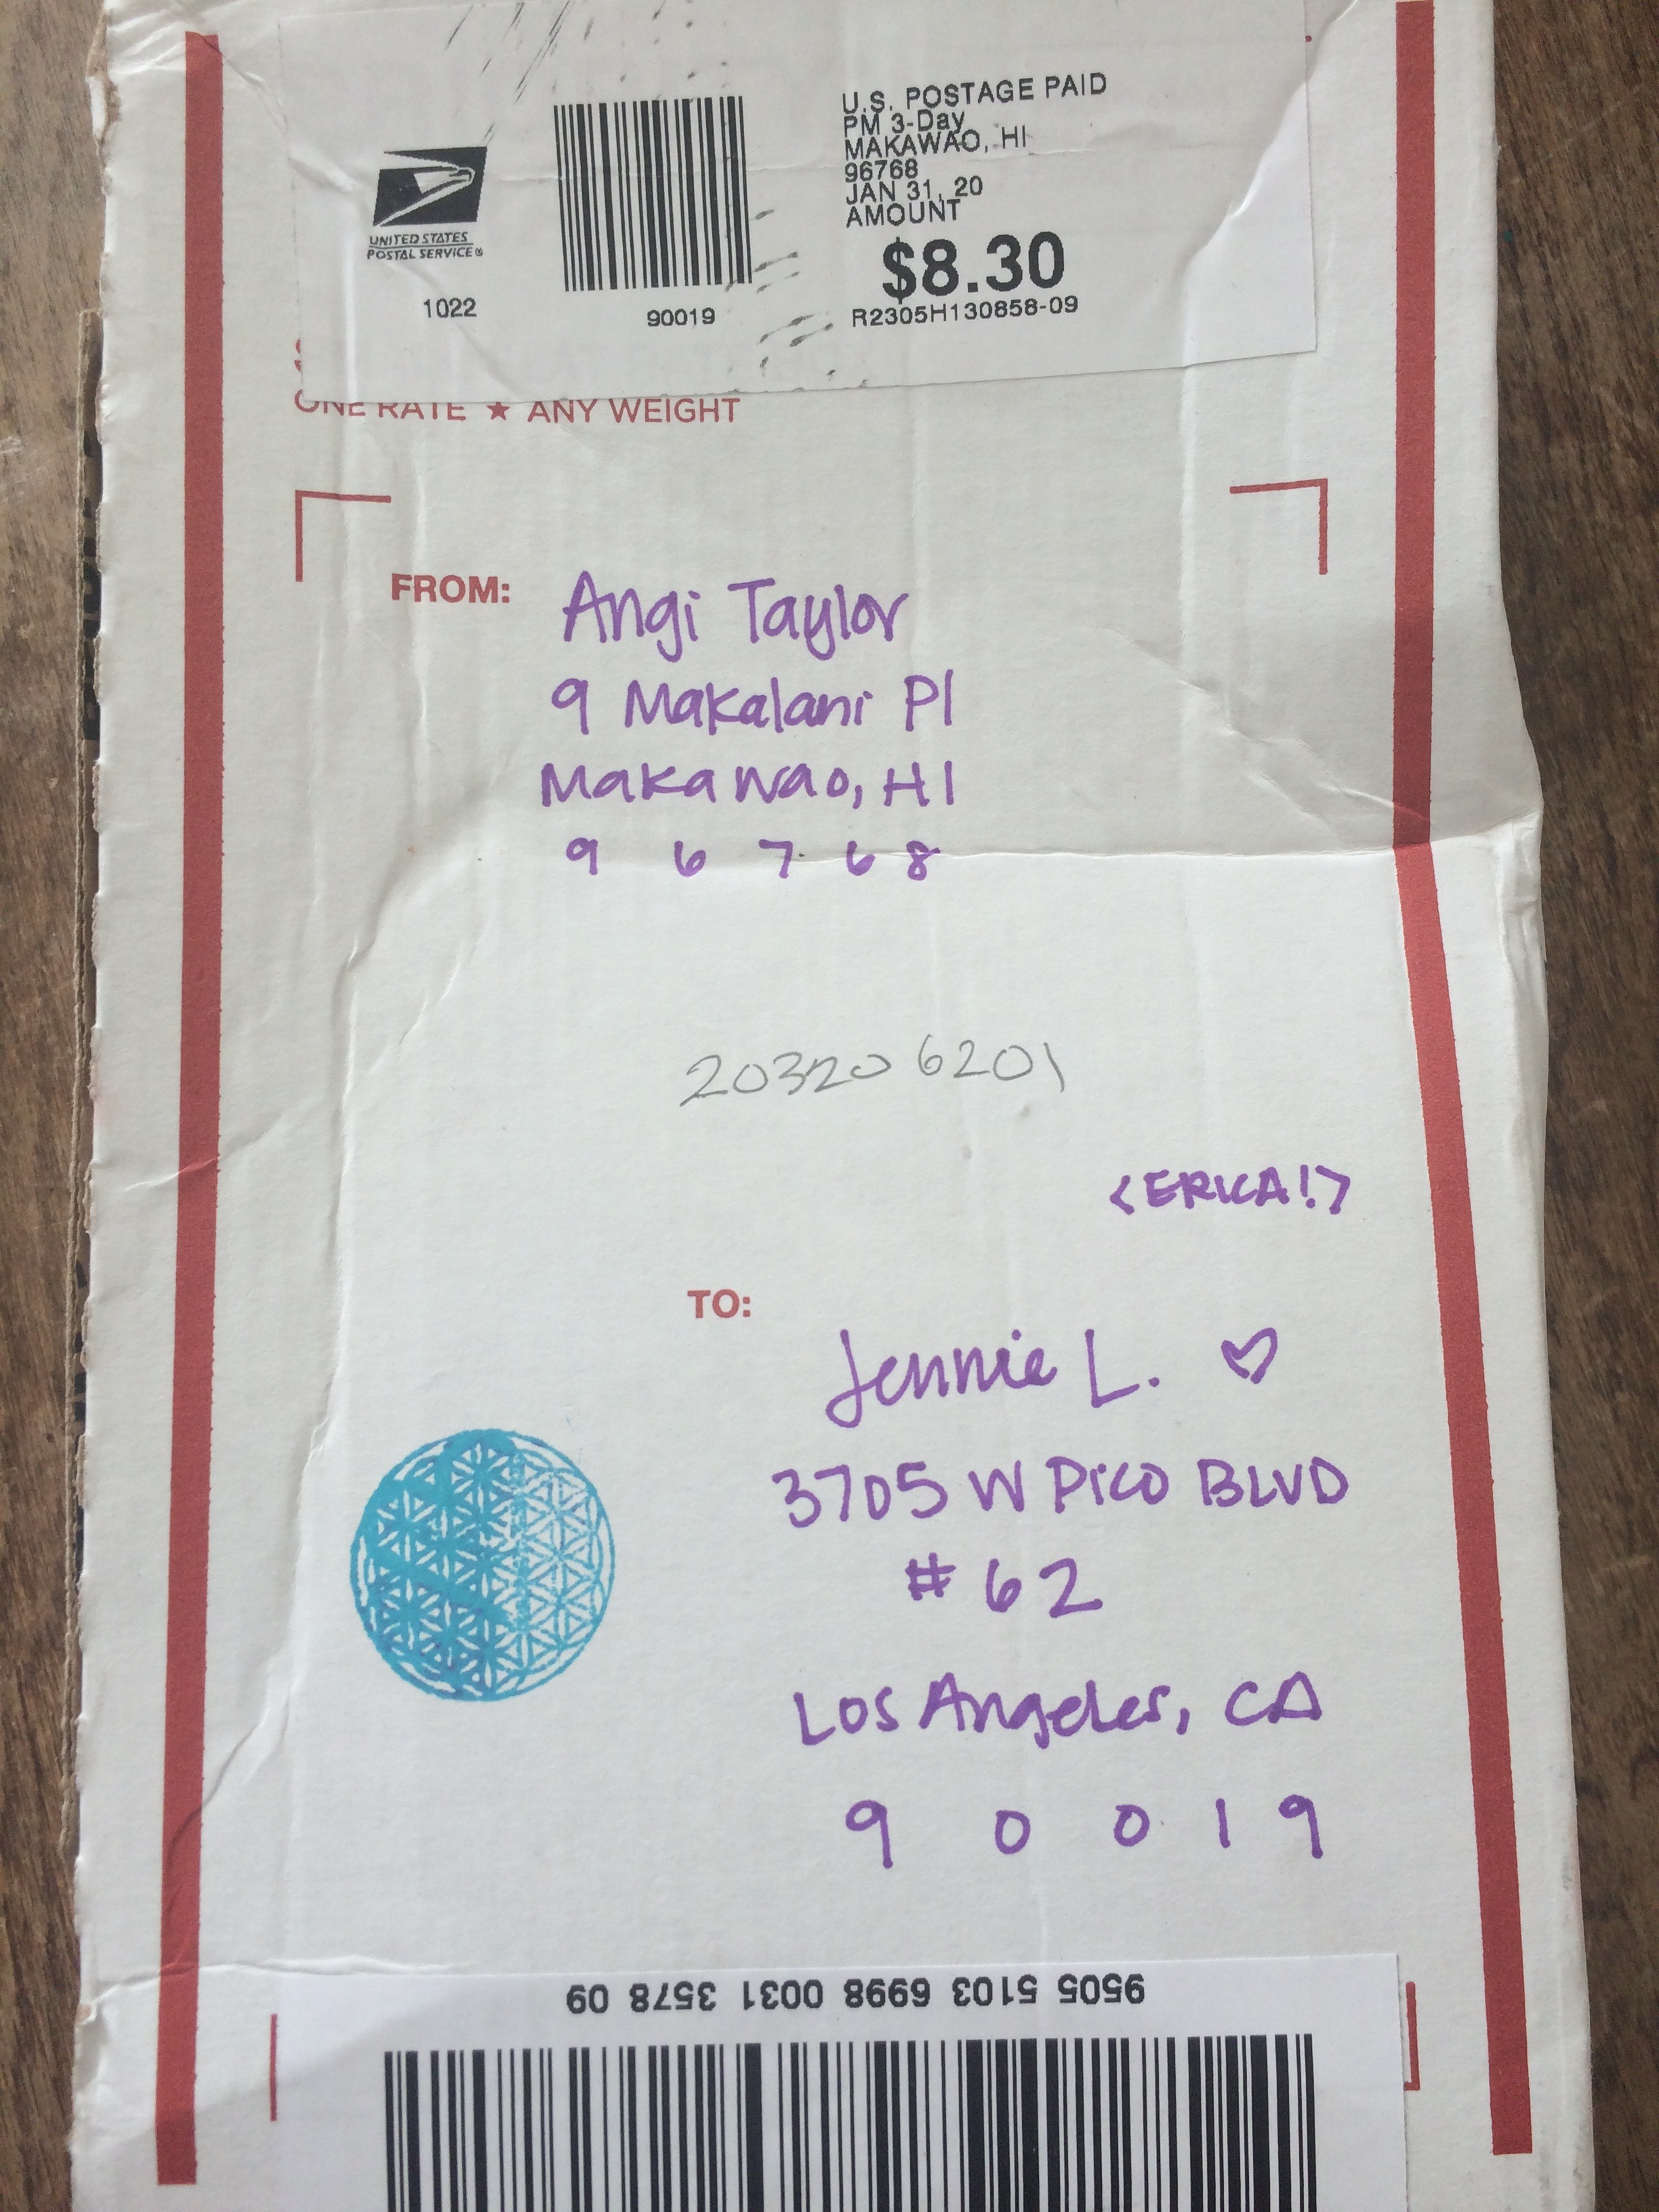 U.S. POSTAGE PAID
PM 3-Day
MAKAWAO, HI
96768
JAN 31, 20
AMOUNT
$8.30
R2305H130858-09
UNITED STATES
POSTAL SERVICE®
1022
90019
ONE RATE ★ ANY WEIGHT
FROM: Angi Taylor
9 Makalani Pl
Makawao, HI
9 6 7 6 8
203206201
<ERICA!>
TO:
Jennie L. ♡
3705 W PICO BLVD
# 62
Los Angeles, CA
9 0 0 1 9
9505 5103 6998 0031 3578 09